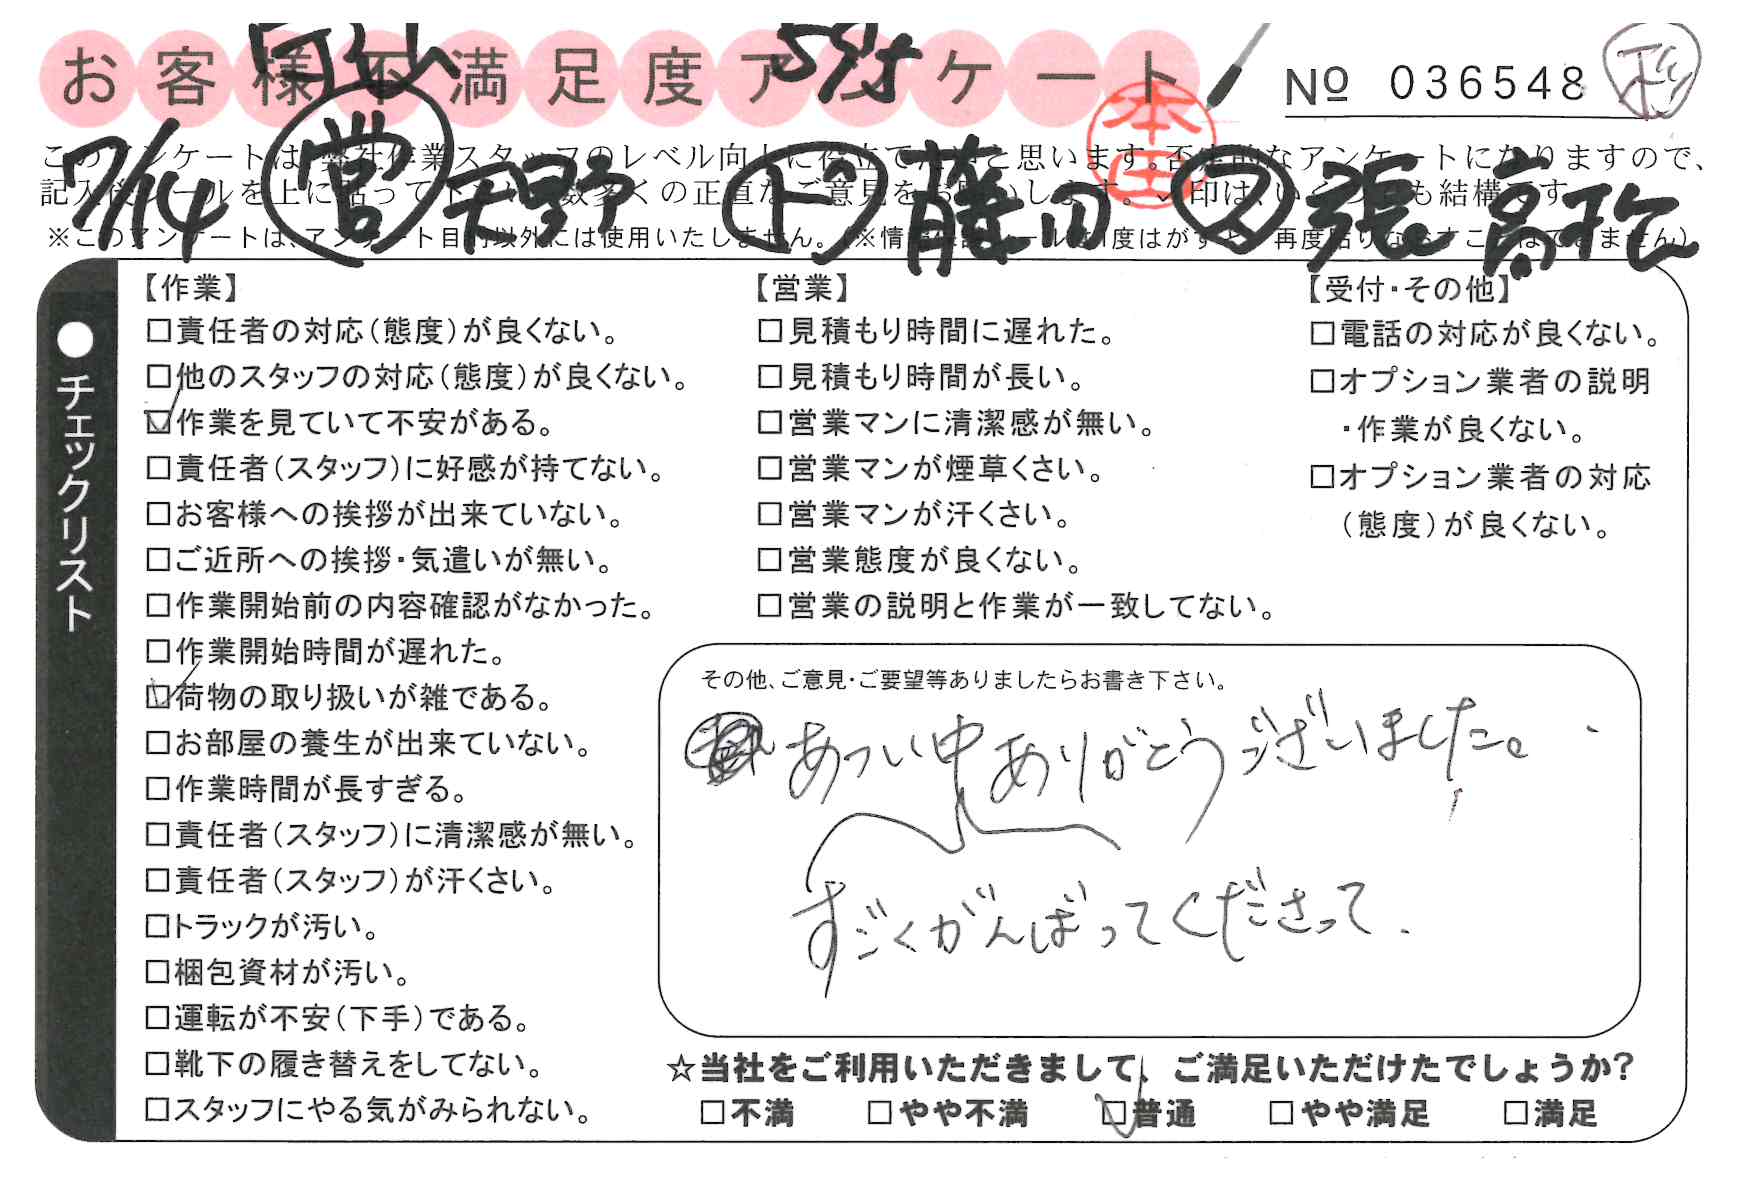 お客様不満足度アンケート
№ 036548
本田
このアンケートは、弊社作業スタッフのレベル向上に役立てたいと思います。不定期的なアンケートになりますので、
記入後シールを上に貼って下さい。数多くの正直なご意見をお願いします。✓印は、いくつでも結構です。
※このアンケートは、アンケート目的以外には使用いたしません。(※情報保護シールは1度はがすと、再度貼りなおすことはできません)
7/14 営 天野 ド 藤田 ス 張 高松
●チェックリスト
【作業】
□責任者の対応(態度)が良くない。
□他のスタッフの対応(態度)が良くない。
☑作業を見ていて不安がある。
□責任者(スタッフ)に好感が持てない。
□お客様への挨拶が出来ていない。
□ご近所への挨拶・気遣いが無い。
□作業開始前の内容確認がなかった。
□作業開始時間が遅れた。
☑荷物の取り扱いが雑である。
□お部屋の養生が出来ていない。
□作業時間が長すぎる。
□責任者(スタッフ)に清潔感が無い。
□責任者(スタッフ)が汗くさい。
□トラックが汚い。
□梱包資材が汚い。
□運転が不安(下手)である。
□靴下の履き替えをしてない。
□スタッフにやる気がみられない。
【営業】
□見積もり時間に遅れた。
□見積もり時間が長い。
□営業マンに清潔感が無い。
□営業マンが煙草くさい。
□営業マンが汗くさい。
□営業態度が良くない。
□営業の説明と作業が一致してない。
【受付・その他】
□電話の対応が良くない。
□オプション業者の説明
・作業が良くない。
□オプション業者の対応
(態度)が良くない。
その他、ご意見・ご要望等ありましたらお書き下さい。
あつい中ありがとうございました。
すごくがんばってくださって
☆当社をご利用いただきまして、ご満足いただけたでしょうか?
□不満 □やや不満 ☑普通 □やや満足 □満足